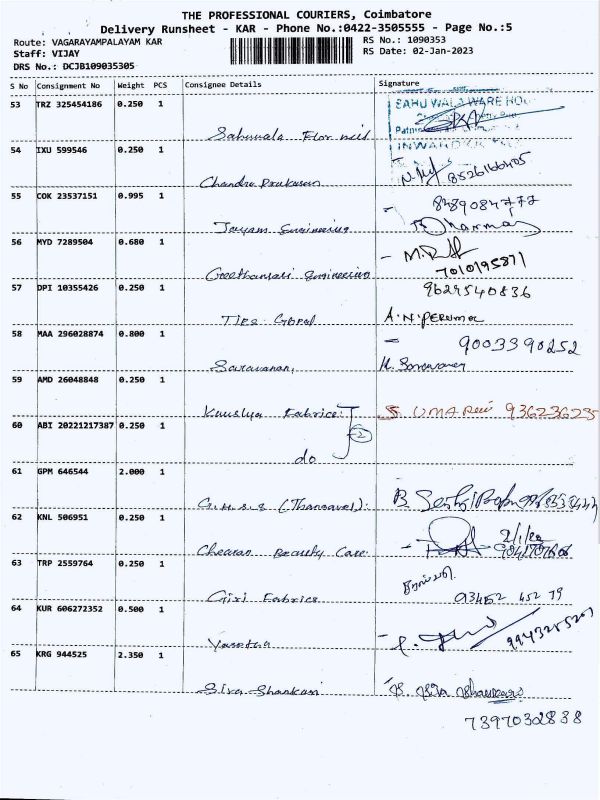 THE PROFESSIONAL COURIERS, Coimbatore
Delivery Runsheet - KAR - Phone No.:0422-3505555 - Page No.:5
Route: VAGARAYAMPALAYAM KAR
RS No.: 1090353
Staff: VIJAY
RS Date: 02-Jan-2023
DRS No.: DCJB109035305
S No Consignment No Weight PCS Consignee Details Signature
53 TRZ 325454186 0.250 1
SAHU WALA WARE
INWARD
Sahuwala Flor mill
54 IXU 599546 0.250 1
8526166405
Chandra Prakasan
55 COK 23537151 0.995 1
8489084777
Jayam Engineering Dharmaj
56 MYD 7289504 0.680 1
7010195871
Geethanjali Engineering
57 DPI 10355426 0.250 1
9629540836
Tips Global A.N.PERUMAL
58 MAA 296028874 0.800 1
9003390252
Saravanan,
59 AMD 26048848 0.250 1
Kauslya Fabrice UMA Devi 936236235
60 ABI 20221217387 0.250 1
2
do
61 GPM 646544 2.000 1
G.H.S.S (Thangavel)
62 KNL 506951 0.250 1
Chearan Beauty Care
63 TRP 2559764 0.250 1
Giri Fabrics 93452 452 79
64 KUR 606272352 0.500 1
Yasotha
65 KRG 944525 2.350 1
Siva Shankari
7397032838